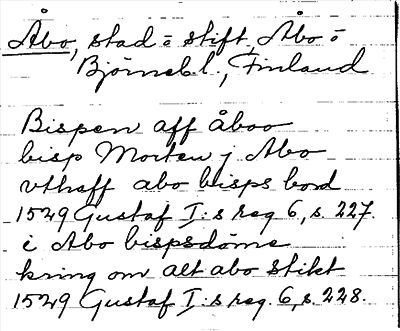 Åbo, stad o stift, Åbo o
Björneb. l., Finland
Bispen aff åboo
bisp Morten j Abo
vthaff abo bisps bord
1529 Gustaf I:s reg 6, s. 227.
i Abo bispsdöme
kring om alt abo stikt
1529 Gustaf I:s reg. 6, s. 228.